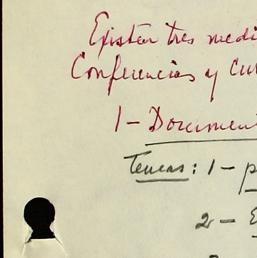 Existen tres medi
Conferencias y Cur
1 - Documen
Temas: 1 - p
2 - E